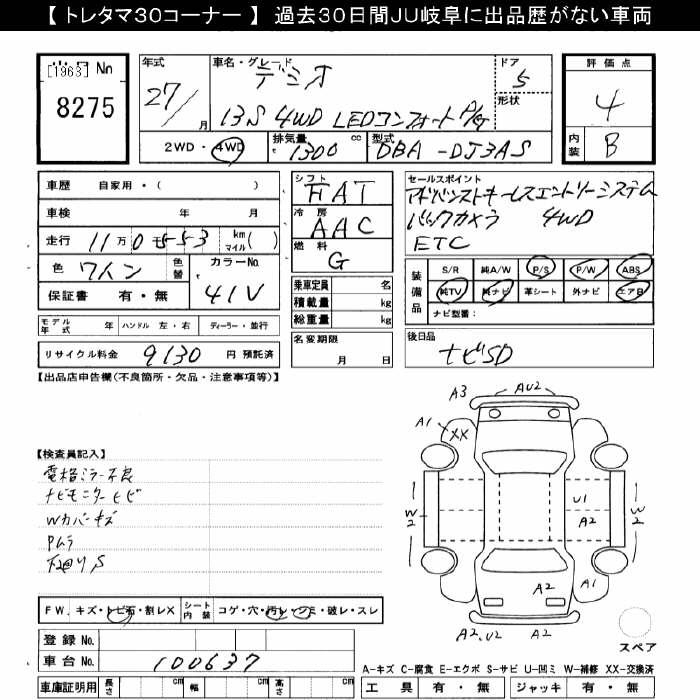 【 トレタマ30コーナー 】 過去30日間JU岐阜に出品歴がない車両
[1963] No
8275
年式
27/
月
車名・グレード
デミオ
13S 4WD LEDコンフォートP/g
ドア
5
形状
2WD・4WD
排気量
1300
cc
型式
DBA-DJ3AS
評価点
4
内装
B
車歴 自家用・( )
車検 年 月
走行 11万0千553 km マイル( )
色 ワイン 色替
カラーNo.
41V
保証書 有・無
モデル年式 年 ハンドル 左・右 ディーラー・並行
リサイクル料金 9130 円 預託済
シフト
FAT
冷房
AAC
燃料
G
乗車定員 名
積載量 kg
総重量 kg
名変期限
月 日
セールスポイント
アドバンストキーレスエントリーシステム
バックカメラ 4WD
ETC
装備品
S/R 純A/W P/S P/W ABS
純TV 純ナビ 革シート 外ナビ エアB
ナビ型番:
後日品
ナビSD
【出品店申告欄(不良箇所・欠品・注意事項等)】
【検査員記入】
電格ミラー不良
ナビモニターヒビ
Wカバーキズ
Pムラ
下廻りS
A3
AU2
A1
XX
W2
U1
A2
W2
A2
A1
A2、U2
A2
スペア
FW. キズ・トビ石・割レX
シート内装
コゲ・穴・汚レ・シミ・破レ・スレ
登録 No.
車台 No. 100637
車庫証明用 長さ cm 幅 cm 高さ cm
A-キズ C-腐食 E-エクボ S-サビ U-凹ミ W-補修 XX-交換済
工具 有・無 ジャッキ 有・無